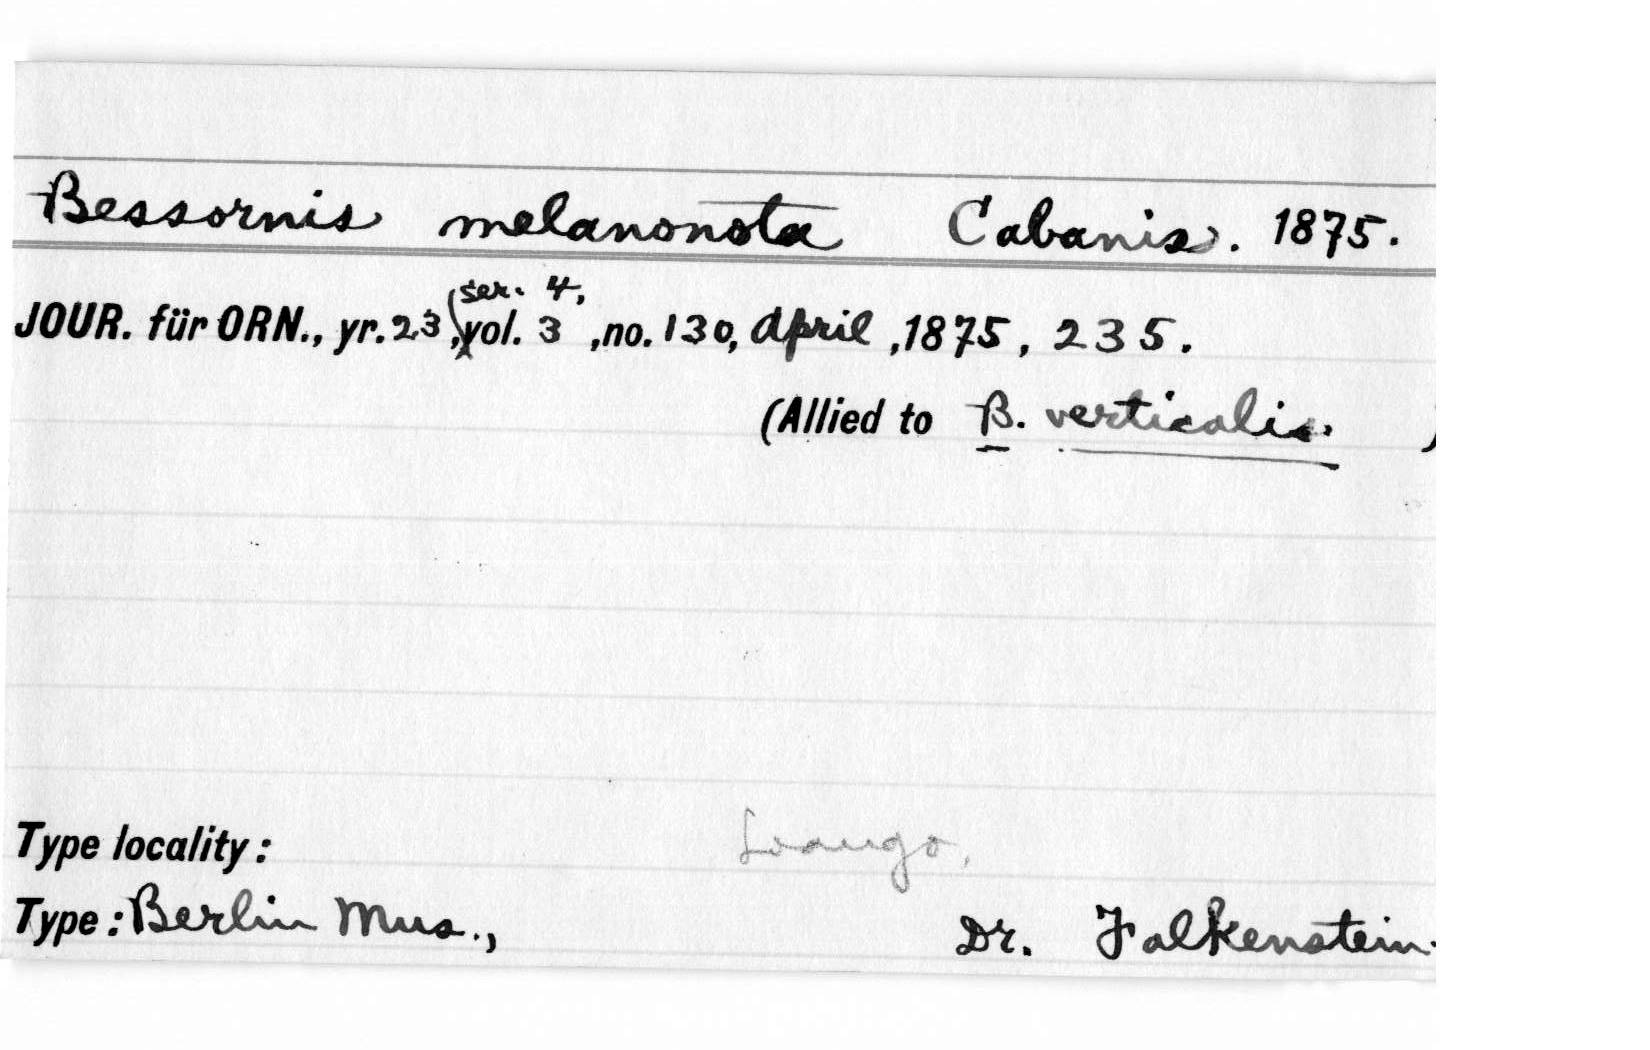 Bessornis melanonota Cabanis. 1875.
ser. 4,
JOUR. für ORN., yr. 23, vol. 3, no. 130, April, 1875, 235.
(Allied to B. verticalis. )
Type locality: Loango,
Type: Berlin Mus., Dr. Falkenstein.